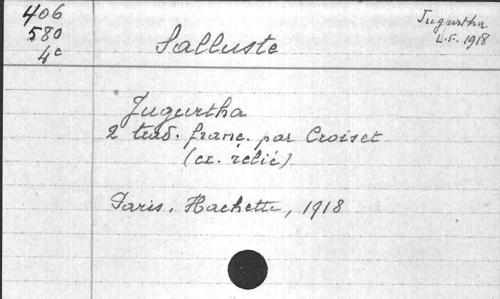 406
580
4c
Jugurtha
L.F. 1918
Salluste
Jugurtha
2 trad. franç. par Croiset
(ex. relié)
Paris, Hachette, 1918